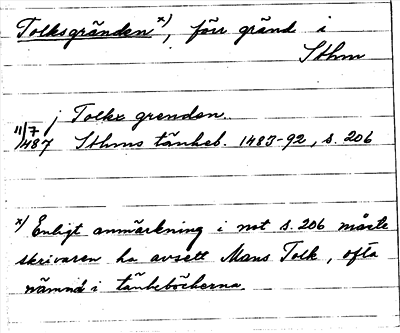 Tolksgränden x), förr gränd i
Sthm
j Tolkx grenden.
11/7 1487 Sthms tänkeb. 1483-92, s. 206
x) Enligt anmärkning i not s. 206 måste
skrivaren ha avsett Mans Tolk, ofta
nämnd i tänkeböckerna.